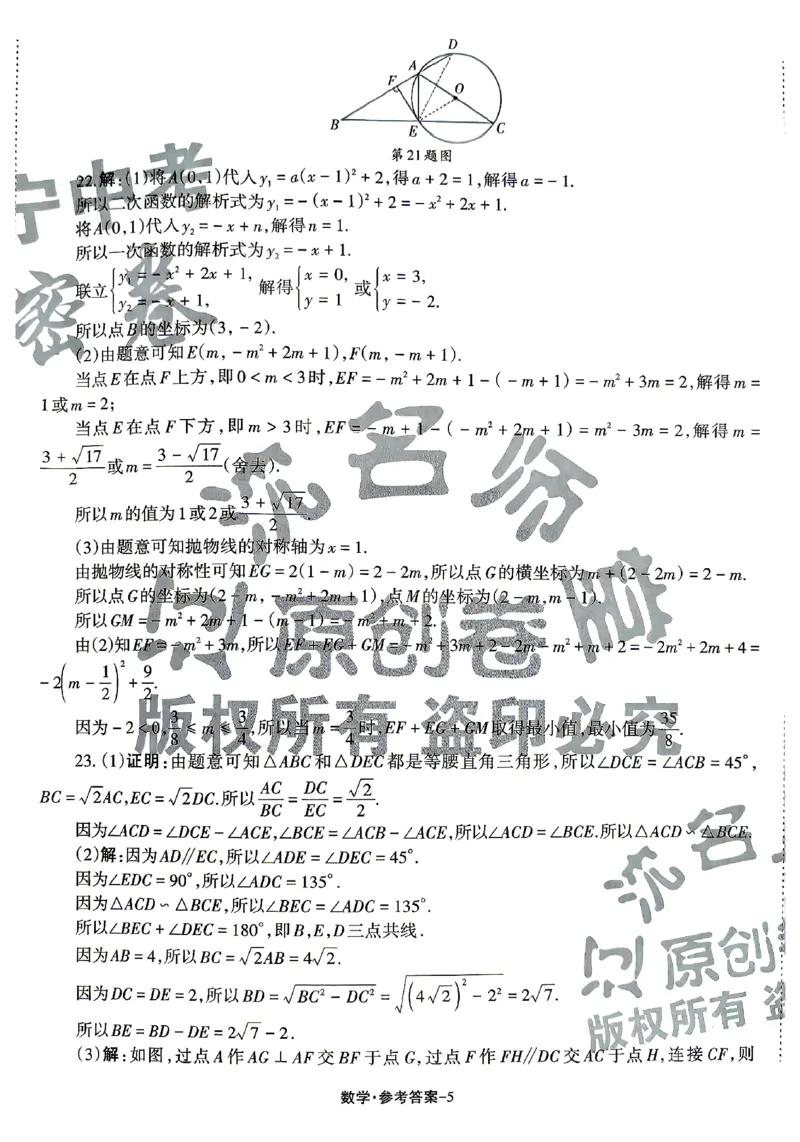 D
A
F
O
B
E
C
第21题图
22.解:(1)将A(0,1)代入y₁=a(x-1)²+2,得a+2=1,解得a=-1.
所以二次函数的解析式为y₁=-(x-1)²+2=-x²+2x+1.
将A(0,1)代入y₂=-x+n,解得n=1.
所以一次函数的解析式为y₂=-x+1.
联立{y₁=-x²+2x+1, y₂=-x+1, 解得{x=0, y=1 或{x=3, y=-2.
所以点B的坐标为(3,-2).
(2)由题意可知E(m,-m²+2m+1),F(m,-m+1).
当点E在点F上方,即0<m<3时,EF=-m²+2m+1-(-m+1)=-m²+3m=2,解得m=
1或m=2;
当点E在点F下方,即m>3时,EF=-m+1-(-m²+2m+1)=m²-3m=2,解得m=
(3+√17)/2或m=(3-√17)/2(舍去).
所以m的值为1或2或(3+√17)/2.
(3)由题意可知抛物线的对称轴为x=1.
由抛物线的对称性可知EG=2(1-m)=2-2m,所以点G的横坐标为m+(2-2m)=2-m.
所以点G的坐标为(2-m,-m²+2m+1),点M的坐标为(2-m,m-1).
所以GM=-m²+2m+1-(m-1)=-m²+m+2.
由(2)知EF=-m²+3m,所以EF+EG+GM=-m²+3m+2-2m-m²+m+2=-2m²+2m+4=
-2(m-1/2)²+9/2.
因为-2<0,3/8≤m≤3/4,所以当m=3/4时,EF+EG+GM取得最小值,最小值为35/8.
23.(1)证明:由题意可知△ABC和△DEC都是等腰直角三角形,所以∠DCE=∠ACB=45°,
BC=√2AC,EC=√2DC.所以AC/BC=DC/EC=√2/2.
因为∠ACD=∠DCE-∠ACE,∠BCE=∠ACB-∠ACE,所以∠ACD=∠BCE.所以△ACD∽△BCE.
(2)解:因为AD∥EC,所以∠ADE=∠DEC=45°.
因为∠EDC=90°,所以∠ADC=135°.
因为△ACD∽△BCE,所以∠BEC=∠ADC=135°.
所以∠BEC+∠DEC=180°,即B,E,D三点共线.
因为AB=4,所以BC=√2AB=4√2.
因为DC=DE=2,所以BD=√(BC²-DC²)=√((4√2)²-2²)=2√7.
所以BE=BD-DE=2√7-2.
(3)解:如图,过点A作AG⊥AF交BF于点G,过点F作FH∥DC交AC于点H,连接CF,则
数学·参考答案-5
宁中考
密卷
名师
原创卷
版权所有 盗印必究
原创
版权所有 盗